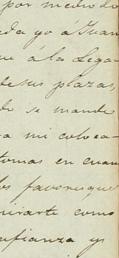 por medio de
da yo á Juan
ue á la Lega-
de sus plazas,
se mande
a mi coloca-
tomas en cuan
los favores que
urarte como
nfianza y